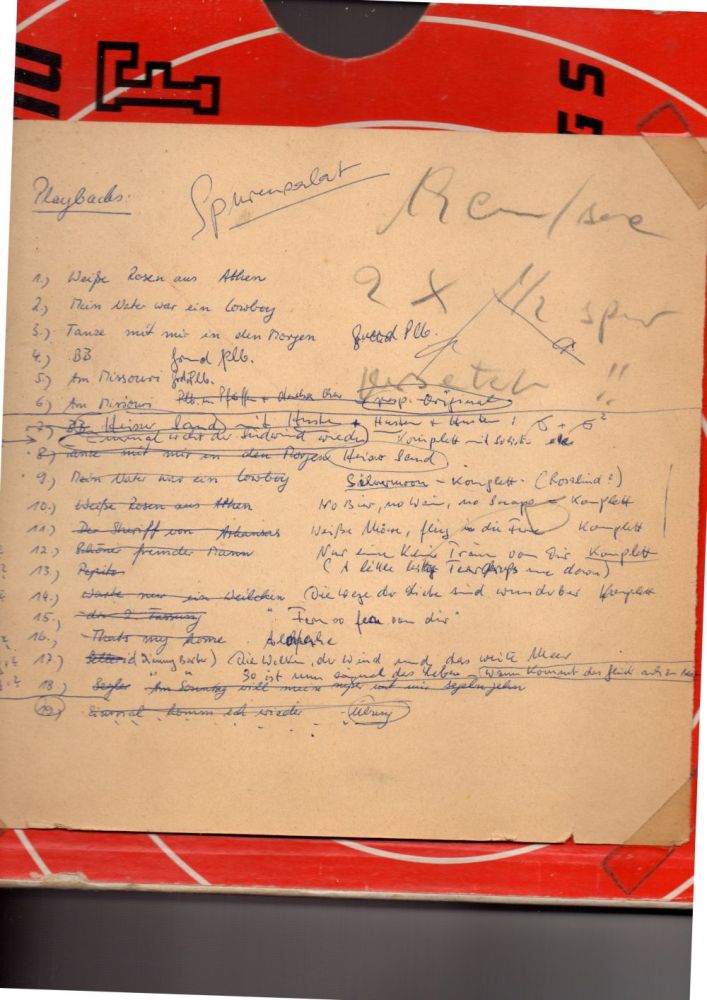 Playbacks:
Spurensalat
19 cm/sec
2 X 1/2 spur
versetzt "
1.) Weiße Rosen aus Athen
2.) Mein Vater war ein Cowboy
3.) Tanze mit mir in den Morgen Plb.
4.) BB Plb.
5.) Am Missouri Plb.
6.) Am Missouri Plb. m. Pfeifen + resp. Original
7.) BB Heißer Sand mit Husten + Husten + Husten !
Einmal weht der Südwind wieder Komplett mit
8.) Tanze mit mir in den Morgen Heißer Sand
9.) Mein Vater war ein Cowboy Silvermoon - Komplett. (Rosalind?)
10.) Weiße Rosen aus Athen No Bier, no Wein, no Snaps - Komplett
11.) Der Sheriff von Arkansas Weiße Möwe, flieg in die Ferne Komplett
12.) Schöner fremder Mann Nur eine kleine Träne von Dir Komplett
13.) Pepito (A little Teardrops me down)
14.) Warte nur ein Weilchen Die Wege der Liebe sind wunderbar Komplett
15. - der 2. Fassung " Fern so fern von dir"
16.) Thats my home
17.) (Jimmy Barber) Die Wolken, der Wind und das weite Meer
So ist nun einmal das Leben - Wann kommt das Glück auch zu
18.) Segler " Am Sonntag will mein Süßer mit mir segeln gehn
19.) Einmal komm ich wieder